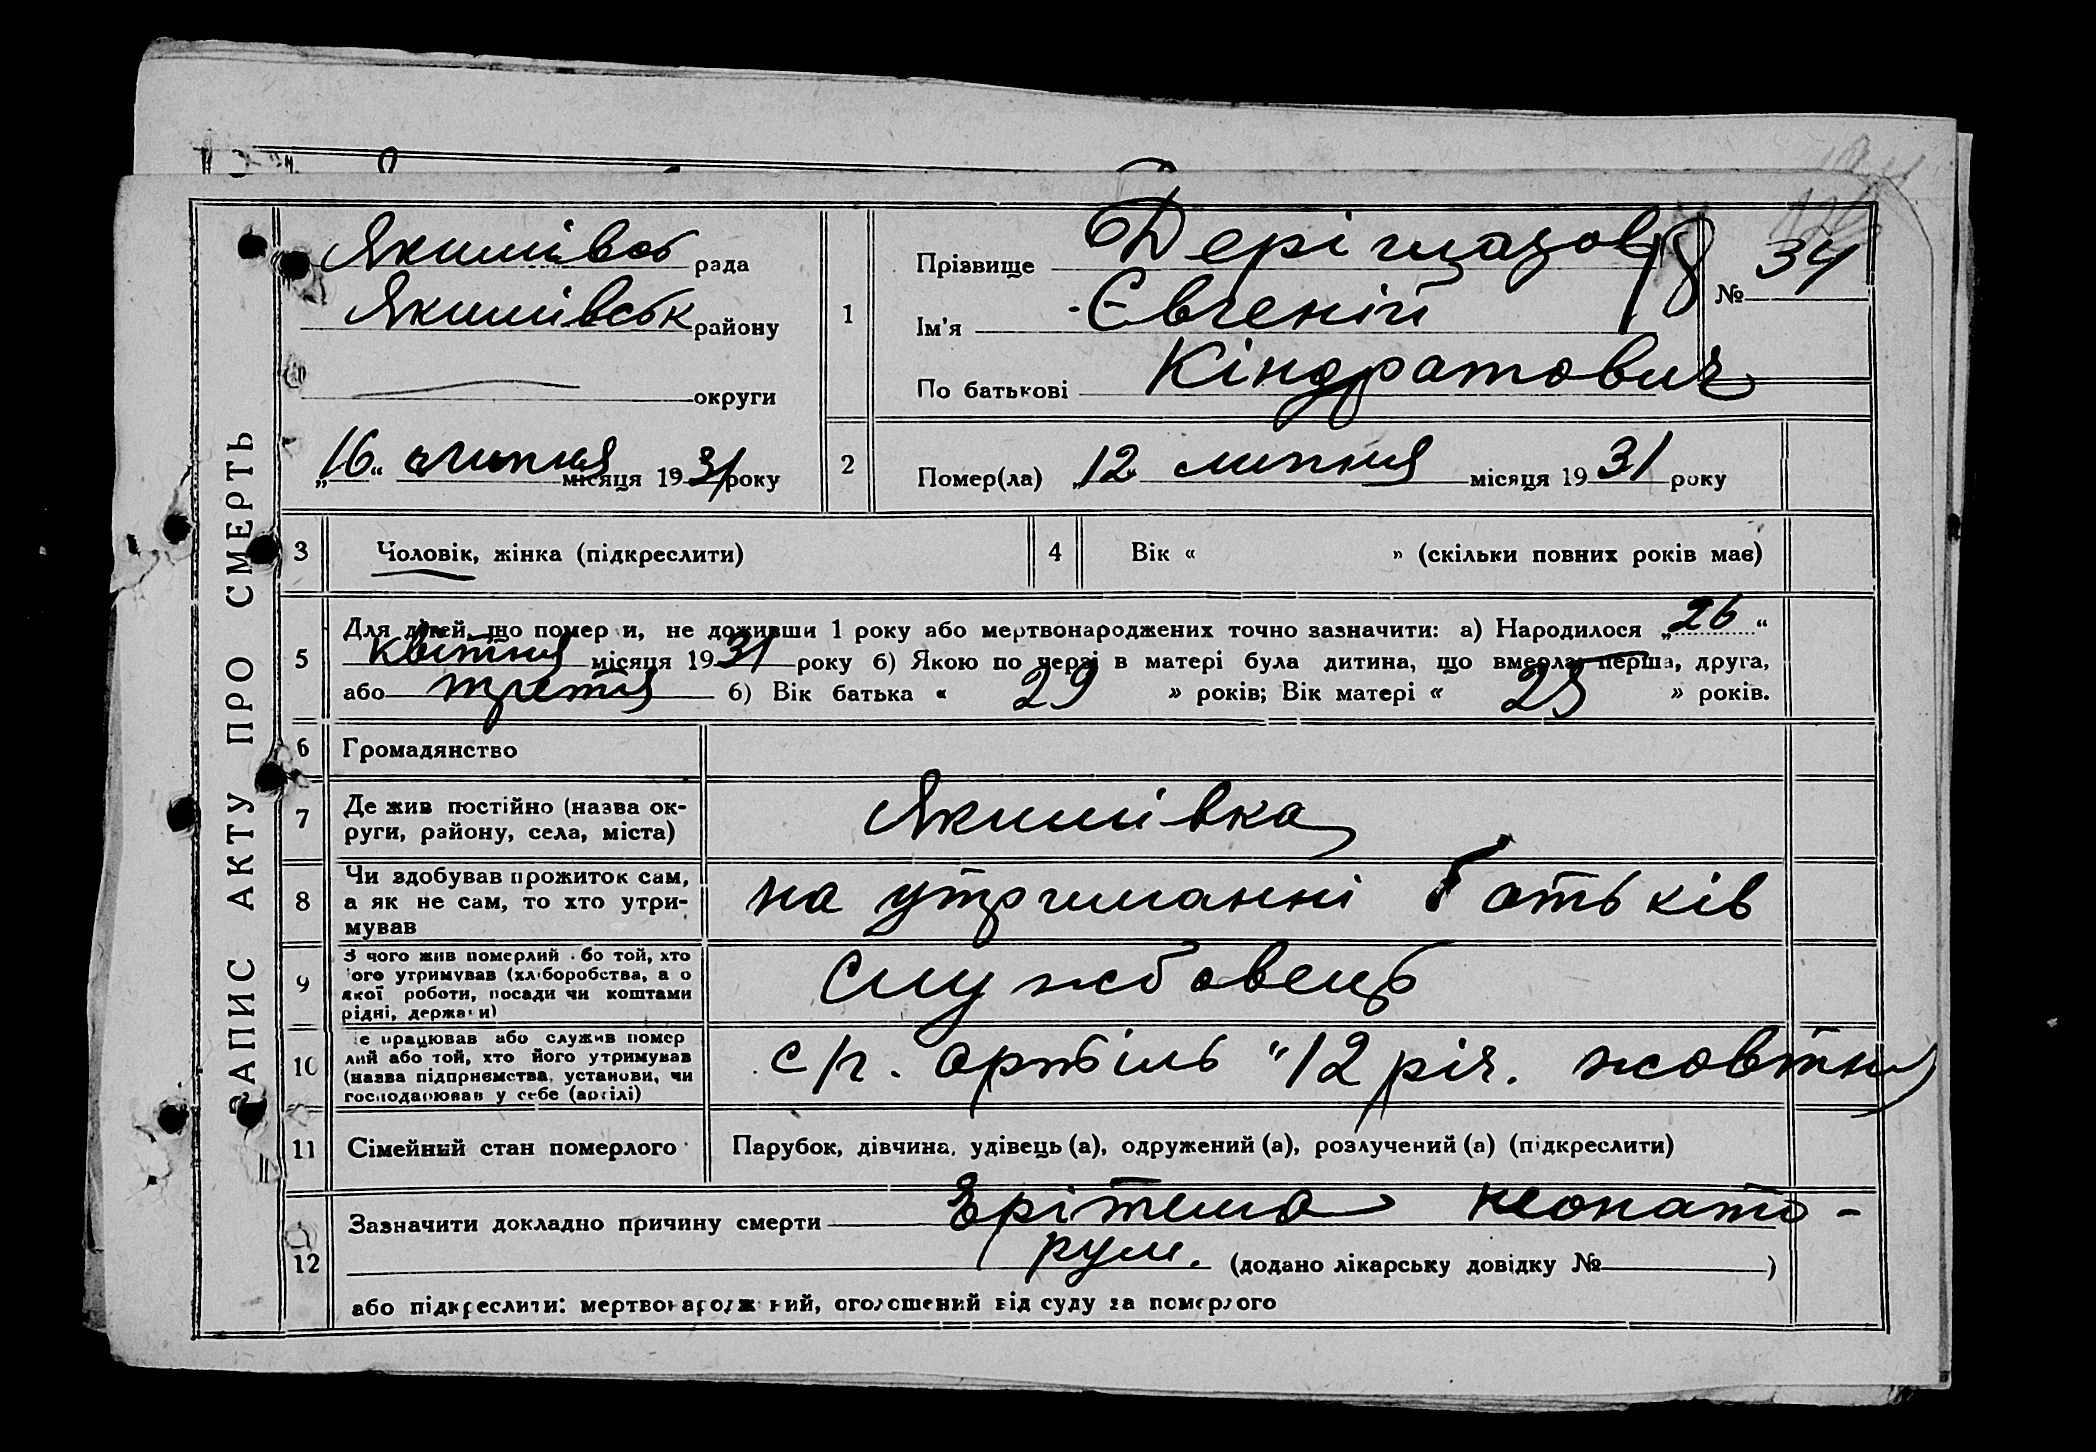 ЗАПИС АКТУ ПРО СМЕРТЬ
Якимівськ рада
Якимівськ району
округи
„16“ липня місяця 1931 року
1
Прізвище Деріглазов
Ім'я Євгеній
По батькові Кіндратович
18
№ 34
2
Помер(ла) „12 липня місяця 1931 року
3 Чоловік, жінка (підкреслити)
4 Вік « » (скільки повних років має)
5
Для дітей, що померли, не доживши 1 року або мертвонароджених точно зазначити: а) Народилося „26“
квітня місяця 1931 року б) Якою по черзі в матері була дитина, що вмерла: перша, друга,
або третя б) Вік батька « 29 » років; Вік матері « 25 » років.
6 Громадянство
7 Де жив постійно (назва ок-
руги, району, села, міста)
Якимівка
8 Чи здобував прожиток сам,
а як не сам, то хто утри-
мував
на утриманні батьків
9 З чого жив померлий або той, хто
його утримував (хліборобства, а о
якої роботи, посади чи коштами
рідні, держави)
службовець
10 Де працював або служив помер
лий або той, хто його утримував
(назва підприємства, установи, чи
господарював у себе (артілі)
с/г. артіль "12 річ. жовтня
11 Сімейний стан померлого
Парубок, дівчина, удівець (а), одружений (а), розлучений (а) (підкреслити)
12
Зазначити докладно причину смерти Ерітема неонато-
рум. (додано лікарську довідку № )
або підкреслити: мертвонароджений, оголошений від суду за померлого